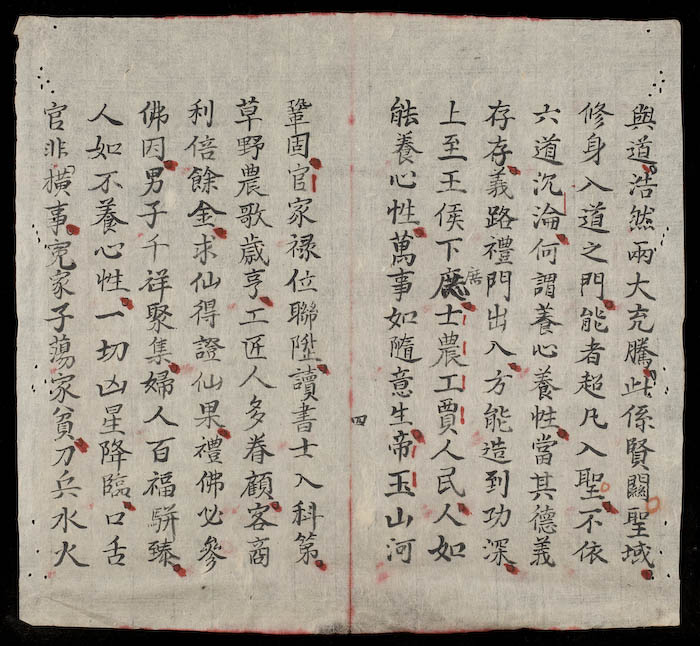 與道浩然兩大充騰此係賢關聖域
修身入道之門能者超凡入聖不依
六道沉淪何謂養心養性當其德義
存存義路禮門出入方能造到功深
上至王侯下庶士農工賈人民人如
能養心性萬事如隨意生帝玉山河
四
鞏固官家祿位聯陞讀書士入科第
草野農歌歲亨工匠人多眷顧客商
利倍餘金求仙得證仙果禮佛必參
佛因男子千祥聚集婦人百福駢臻
人如不養心性一切凶星降臨口舌
官非橫事冤家子蕩家貧刀兵水火